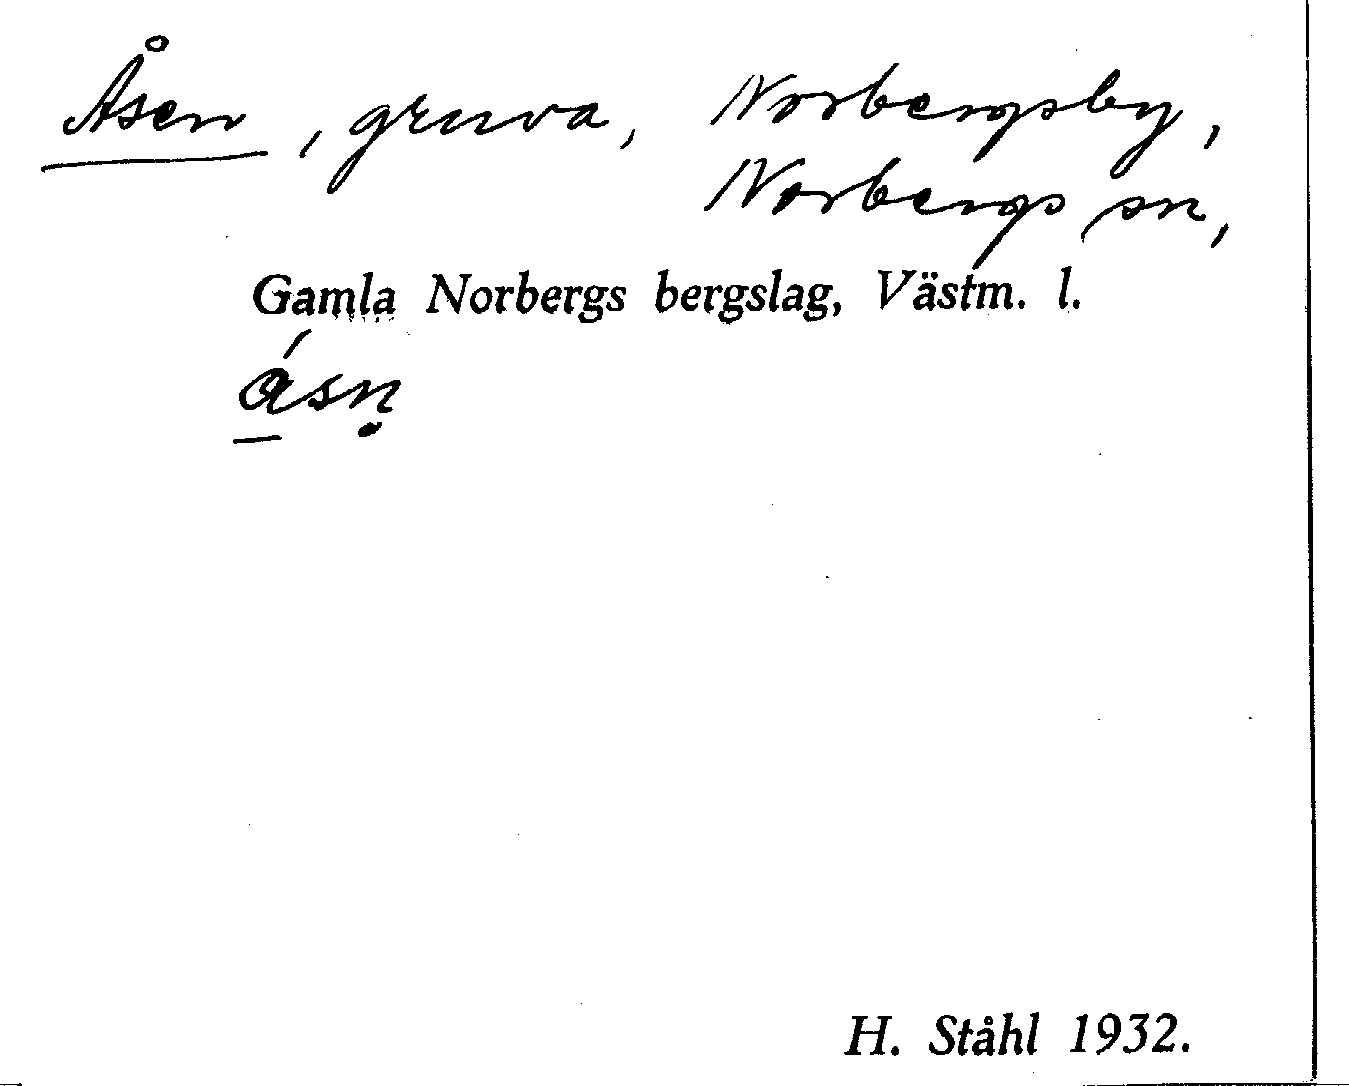 Åsen, gruva, Norbergsby,
Norbergs sn,
Gamla Norbergs bergslag, Västm. l.
ɑ̱́sṇ
H. Ståhl 1932.